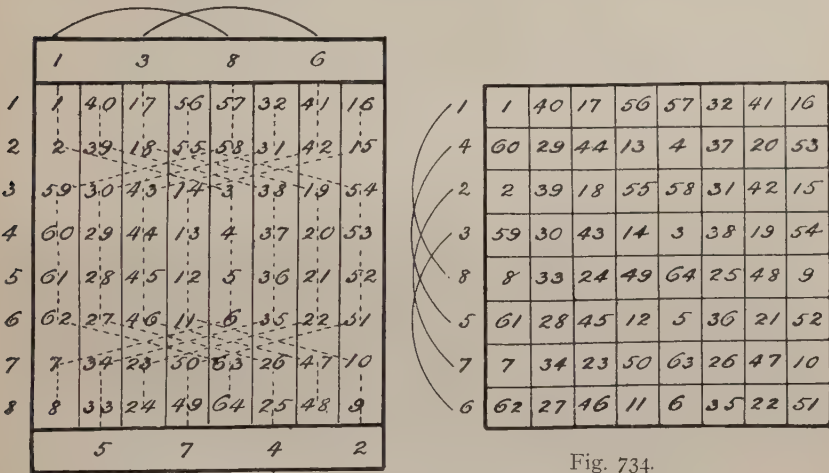 1 3 8 6
1 1 40 17 56 57 32 41 16
2 2 39 18 55 58 31 42 15
3 59 30 43 14 3 38 19 54
4 60 29 44 13 4 37 20 53
5 61 28 45 12 5 36 21 52
6 62 27 46 11 6 35 22 51
7 7 34 23 50 63 26 47 10
8 8 33 24 49 64 25 48 9
5 7 4 2
1 1 40 17 56 57 32 41 16
4 60 29 44 13 4 37 20 53
2 2 39 18 55 58 31 42 15
3 59 30 43 14 3 38 19 54
8 8 33 24 49 64 25 48 9
5 61 28 45 12 5 36 21 52
7 7 34 23 50 63 26 47 10
6 62 27 46 11 6 35 22 51
Fig. 734.